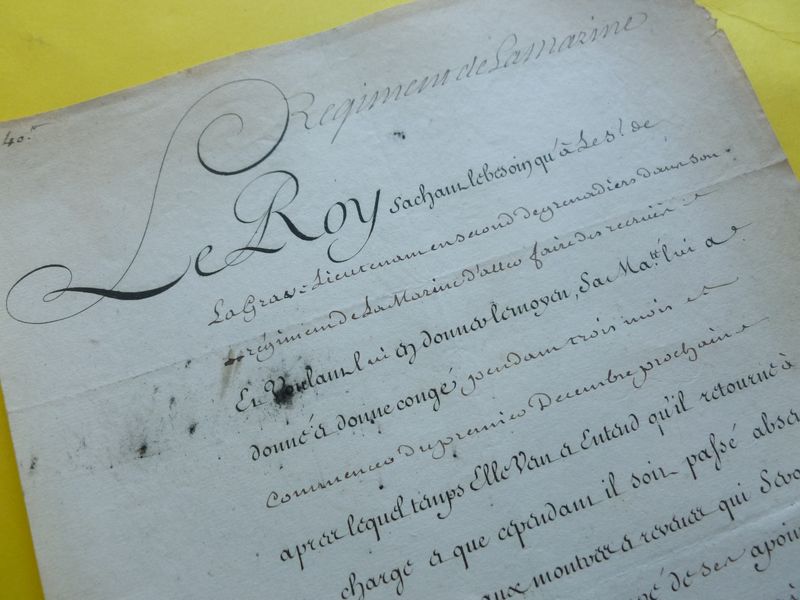 40.e
Regiment de Lamarine
Le Roy sachant le besoin qu'à Le S.r de
La Grave Lieutenant en second de grenadiers dans son
régiment de La Marine d'aller faire des recruës et
Et Voulant lui en donner le moyen, Sa Ma.té lui a
donné et donne congé pendant trois mois et
commencer du premier Decembre prochain
apres lequel temps Elle Veut et Entend qu'il retourne à
charge et que cependant il soit passé absen
aux montres et reveues qui Sero
de ses apoin